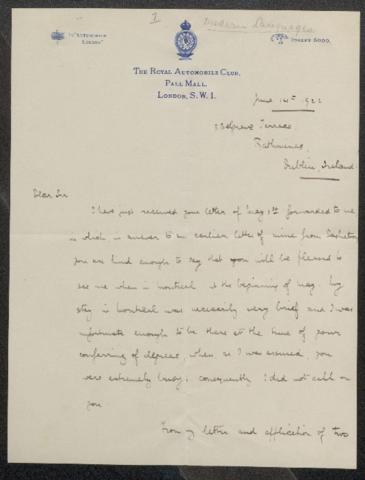 I Modern Languages
"AUTOMOBILE LONDON" REGENT 5000.
THE ROYAL AUTOMOBILE CLUB,
PALL MALL,
LONDON, S.W.1.
June 14th 1922
Belgrave Terrace
Rathmines,
Dublin, Ireland
Dear Sir
I have just received your letter of May 1st forwarded to me
in which in answer to an earlier letter of mine from
you are kind enough to say that you will be pleased to
see me when in Montreal at the beginning of May. My
stay in Montreal was necessarily very brief and I was
unfortunate enough to be there at the time of your
conferring of degrees, when, as I was assured, you
were extremely busy; consequently I did not call on
you.
From my letter and application of two